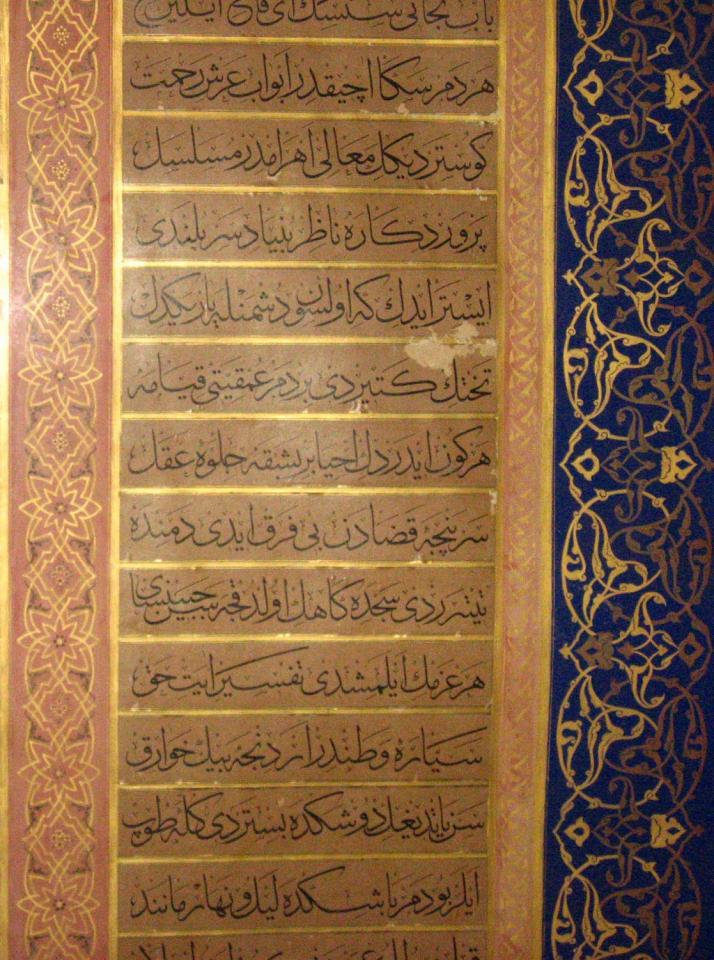 باب نجاتی سنسك ای فاتح
هر دم سكا اچیقدر ابواب عرش رحمت
كوستردیكك معالی اهرامدر مسلسل
پروردكاره ناظر بنیاد سربلندی
ایستر ایدك كه اولسون دشمنله یار یكدل
تختك كتیردی بردم عمقیتی قیامه
هركون ایدر دل احیا بر بشقه جلوه عقل
سرپنجهٔ قضادن بی فرق ایدی دمنده
تیترردی سجده كاهك اولدقجه جبین سای
هر عزمك ایلمشدی تفسیر ایت حق
سیاره وطندر اردنجه بیك خوارق
سن یاتدیغك دوشكده بستردی كله طوپ
ایلر بو دم باشكده لیل و نهار مانند